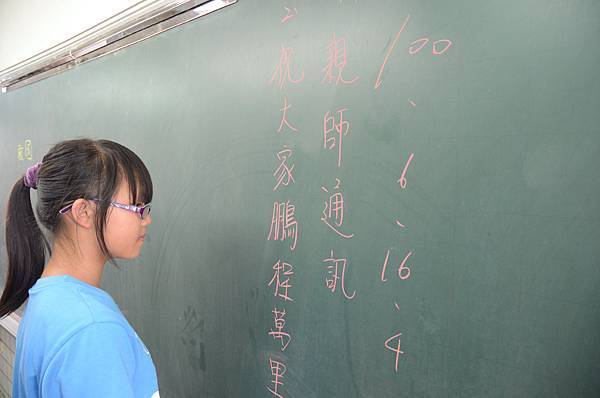 100、6、16、4
親師通訊
2、祝大家鵬程萬里